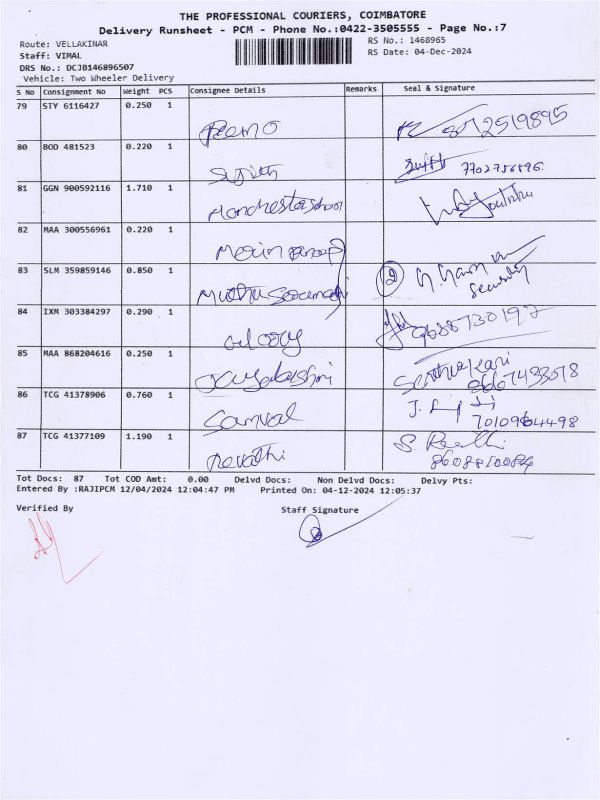 THE PROFESSIONAL COURIERS, COIMBATORE
Delivery Runsheet - PCM - Phone No.:0422-3505555 - Page No.:7
Route: VELLAKINAR
RS No.: 1468965
Staff: VIMAL
RS Date: 04-Dec-2024
DRS No.: DCJB146896507
Vehicle: Two Wheeler Delivery
S No Consignment No Weight PCS Consignee Details Remarks Seal & Signature
79 STY 6116427 0.250 1
8072519895
80 BOD 481523 0.220 1
Sujith 7702756896
81 GGN 900592116 1.710 1
Manchester
82 MAA 300556961 0.220 1
Merin
83 SLM 359859146 0.850 1
12 Security
84 IXM 303384297 0.290 1
9688730197
85 MAA 868204616 0.250 1
8667433578
86 TCG 41378906 0.760 1
7010964498
87 TCG 41377109 1.190 1
Revathi
Tot Docs: 87 Tot COD Amt: 0.00 Delvd Docs: Non Delvd Docs: Delvy Pts:
Entered By :RAJIPCM 12/04/2024 12:04:47 PM Printed On: 04-12-2024 12:05:37
Verified By Staff Signature